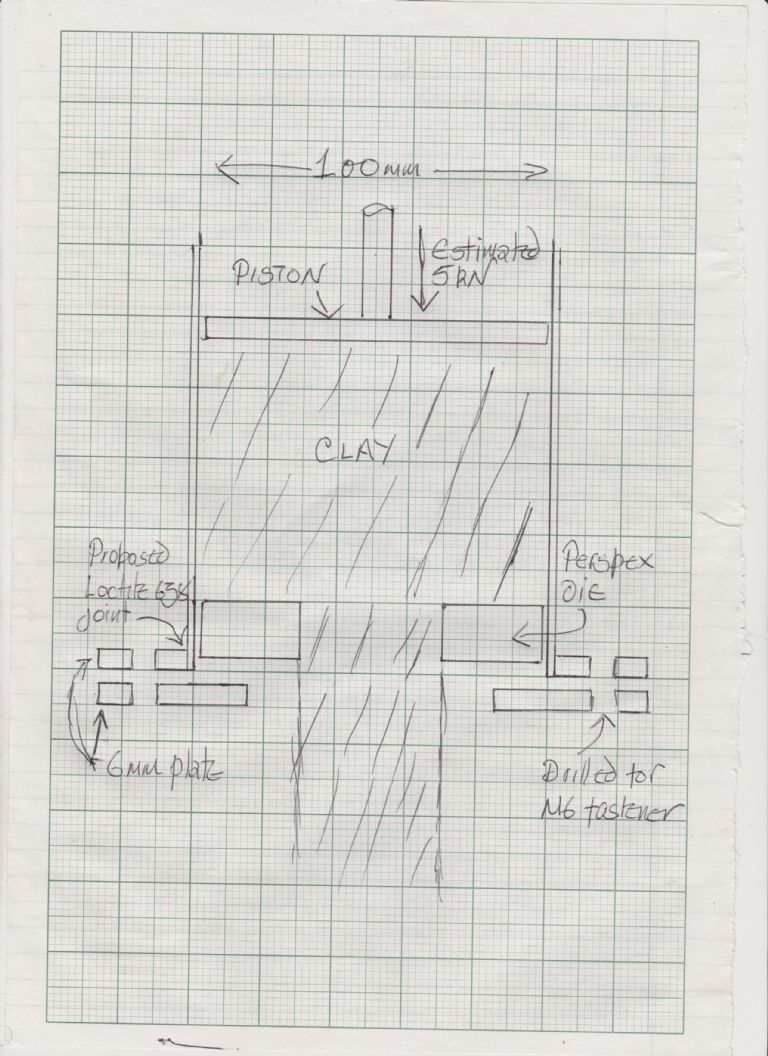 100mm
PISTON
Estimated
5kN
CLAY
Proposed
Loctite 638
joint
Perspex
DIE
6mm plate
Drilled for
M6 fastener